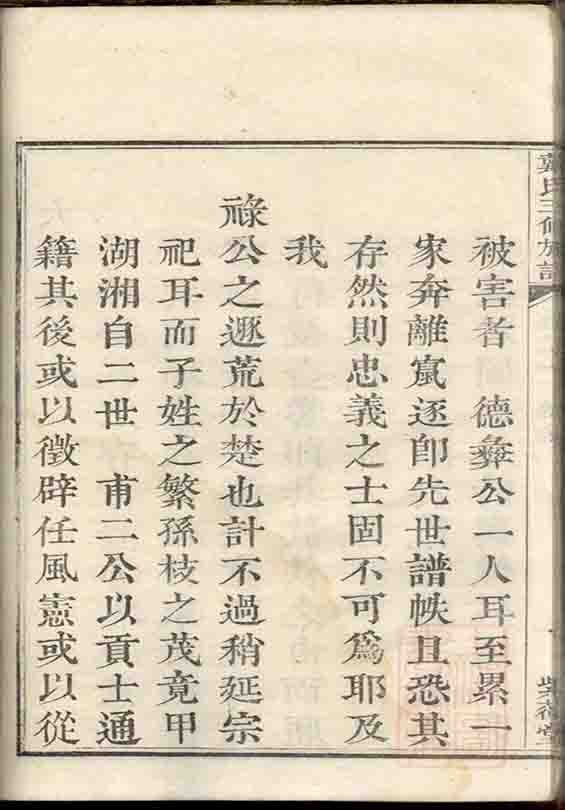 戴氏三修族譜
被害者 德彝公一人耳至累一
家奔離竄逐即先世譜帙且恐其
存然則忠義之士固不可為耶及
我
祿公之遯荒於楚也計不過稍延宗
祀耳而子姓之繁孫枝之茂竟甲
湖湘自二世 甫二公以貢士通
籍其後或以徵辟任風憲或以從